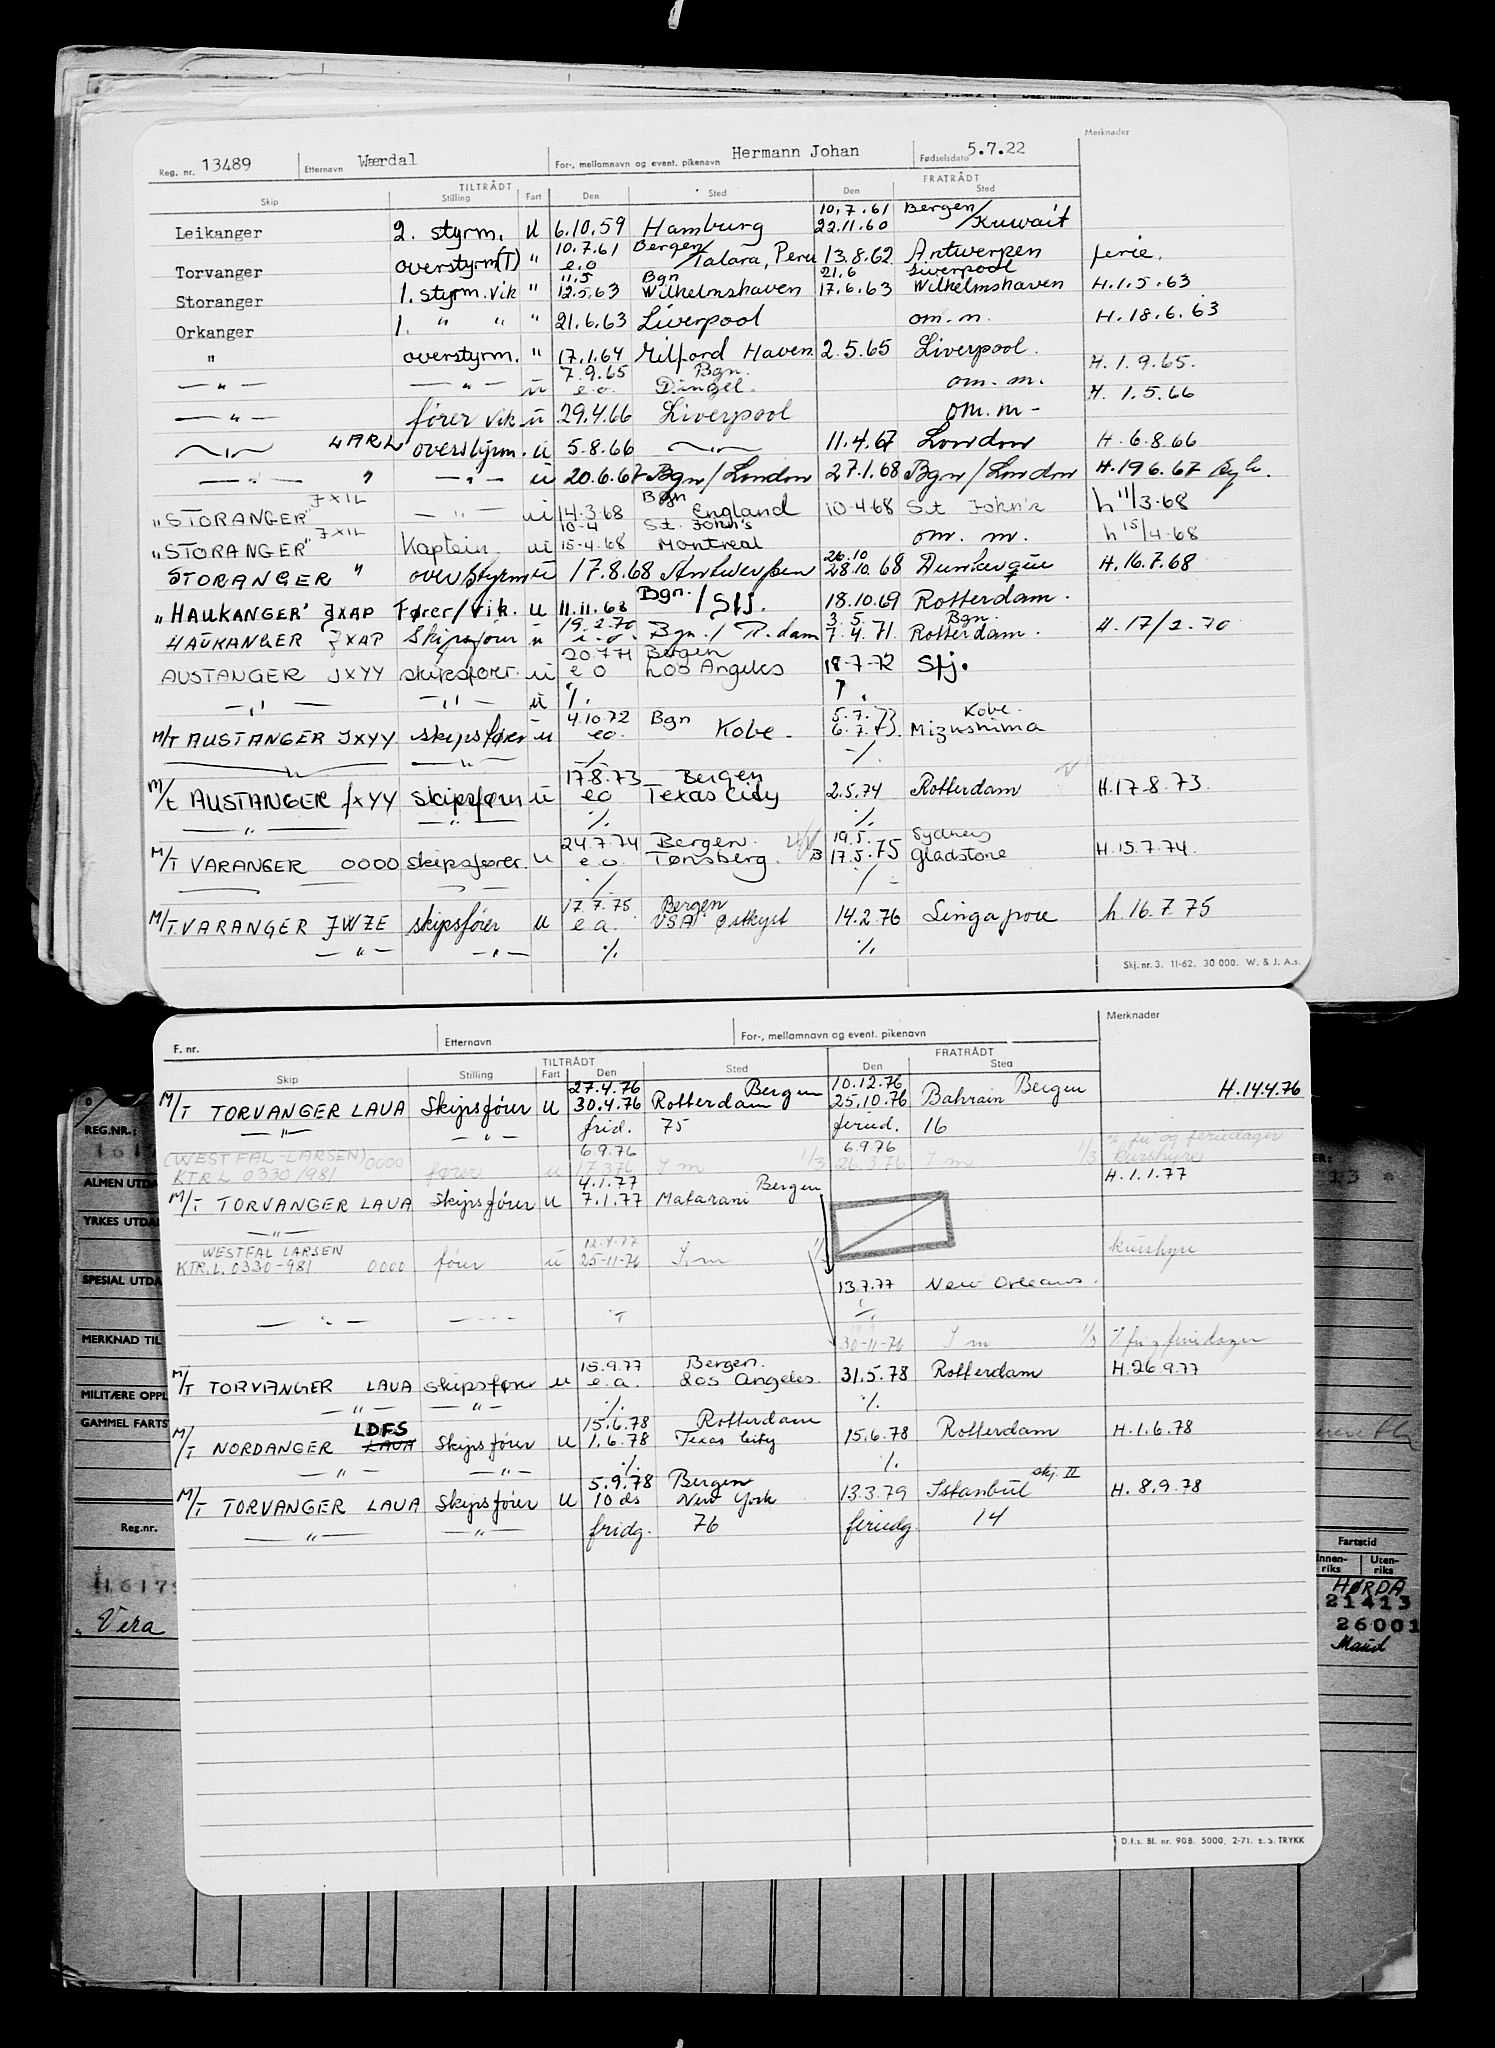 Merknader
Reg. nr. 13489 Etternavn Wærdal For-, mellomnavn og event. pikenavn Hermann Johan Fødselsdato 5.7.22
TILTRÅDT FRATRÅDT
Skip Stilling Fart Den Sted Den Sted
10.7.61 Bergen/
Leikanger 2. styrm. u 6.10.59 Hamburg 22.11.60 Kuwait
10.7.61 Bergen/
Torvanger overstyrm(T) " e.o Talara, Peru 13.8.62 Antwerpen ferie.
11.5 Bgn 21.6 Liverpool
Storanger 1. styrm. vik " 12.5.63 Wilhelmshaven 17.6.63 Wilhelmshaven H.1.5.63
Orkanger 1. " " " 21.6.63 Liverpool om.m. H.18.6.63
" overstyrm. " 17.1.64 Milford Haven 2.5.65 Liverpool.
7.9.65 Bgn. H.1.9.65.
— " — — " — u e.o. Dingel. om.m. H. 1.5.66
— " — fører vik u 29.4.66 Liverpool om.m-
— " — LARL overstyrm. u 5.8.66 — " — 11.4.67 London H.6.8.66
— " — " — " — u 20.6.67 Bgn/London 27.1.68 Bgn/London H.19.6.67
JXIL Bgn
"STORANGER" — " — u 14-3.68 England 10-4-68 St John's h 11/3-68
JXIL 10-4 St. John's
"STORANGER" Kaptein u 15-4.68 Montreal om. m. h 15/4-68
26.10
STORANGER " overstyrm u 17.8.68 Antwerpen 28.10.68 Dunkerque H.16.7.68
"HAUKANGER" JXAP Fører/vik. u 11.11.68 Bgn./Stj. 18.10.69 Rotterdam.
19.2.70 3.5. Bgn.
HAUKANGER JXAP Skipsfører u e.o. Bgn./R.dam 7.4.71 Rotterdam. H.17/2.70
20.7.71 Bergen
AUSTANGER JXYY skipsfører u e o Los Angeles 18-7-72 Stj.
— " — — " — u %.
4.10.72 Bgn 5.7.73 Kobe.
M/T AUSTANGER JXYY skipsfører u eo. Kobe. 6.7.73. Mizushima
— " — — " — % %.
17.8.73 Bergen
M/T AUSTANGER JXYY skipsfører u eo Texas City 2.5.74 Rotterdam H.17.8.73.
— " — — " — %. %.
24.7.74 Bergen. 19.5. Sydney
M/T VARANGER OOOO skipsfører. u e.o. Tønsberg. 17.5.75 Gladstone H.15.7.74.
%. %
17.7.75 Bergen
M/T VARANGER JWZE skipsfører u e.a. USA Østkyst 14.2.76 Singapore h.16.7.75
— " — — " — %. %.
Skj. nr. 3. 11-62. 30 000. W. & J. A.s.
F. nr. Etternavn For-, mellomnavn og event. pikenavn Merknader
TILTRÅDT FRATRÅDT
Skip Stilling Fart Den Sted Den Sted
27.4.76 Bergen 10.12.76 Bergen
M/T TORVANGER LAVA Skipsfører u 30.4.76 Rotterdam 25.10.76 Bahrain H.14.4.76
— " — — " — frid. 75 feried. 16
6.9.76 6.9.76 % fri og feriedager
(WESTFAL-LARSEN) OOOO
KTR.L 0330/981 fører u 17.3.76 I m 1/3 26.3.76 I m 1/3 kurshyre
4.1.77 Bergen H.1.1.77
M/T TORVANGER LAVA Skipsfører u 7.1.77 Matarani
— " —
WESTFAL LARSEN 12.4.77
KTR.L. 0330-981 OOOO fører u 25-11-76 I m kurshyre
13.7.77 New Orleans.
— " — — " — %
30-11-76 I m 1/3 % fri og feriedager
15.9.77 Bergen.
M/T TORVANGER LAVA skipsfører u e.a. Los Angeles. 31.5.78 Rotterdam H.26.9.77
— " — — " — %. %.
LDFS 15.6.78 Rotterdam
M/T NORDANGER LAVA Skipsfører u 1.6.78 Texas City 15.6.78 Rotterdam H.1.6.78
— " — — " — %. %.
5.9.78 Bergen skj. II
M/T TORVANGER LAVA Skipsfører u 10 ds New York 13.3.79 Istanbul H. 8.9.78
— " — — " — fridg. 76 feriedg. 14
D.f.s. Bl. nr. 908. 5000. 2-71. E. S. TRYKK
REG.NR.:
ALMEN UTDA
YRKES UTDA
SPESIAL UTDA
MERKNAD TIL
MILITÆRE OPPL
GAMMEL FARTS
Reg.nr.
11617
Vera
Fartstid
Innen-riks Uten-riks
HØRDA
21413
26001
Maud